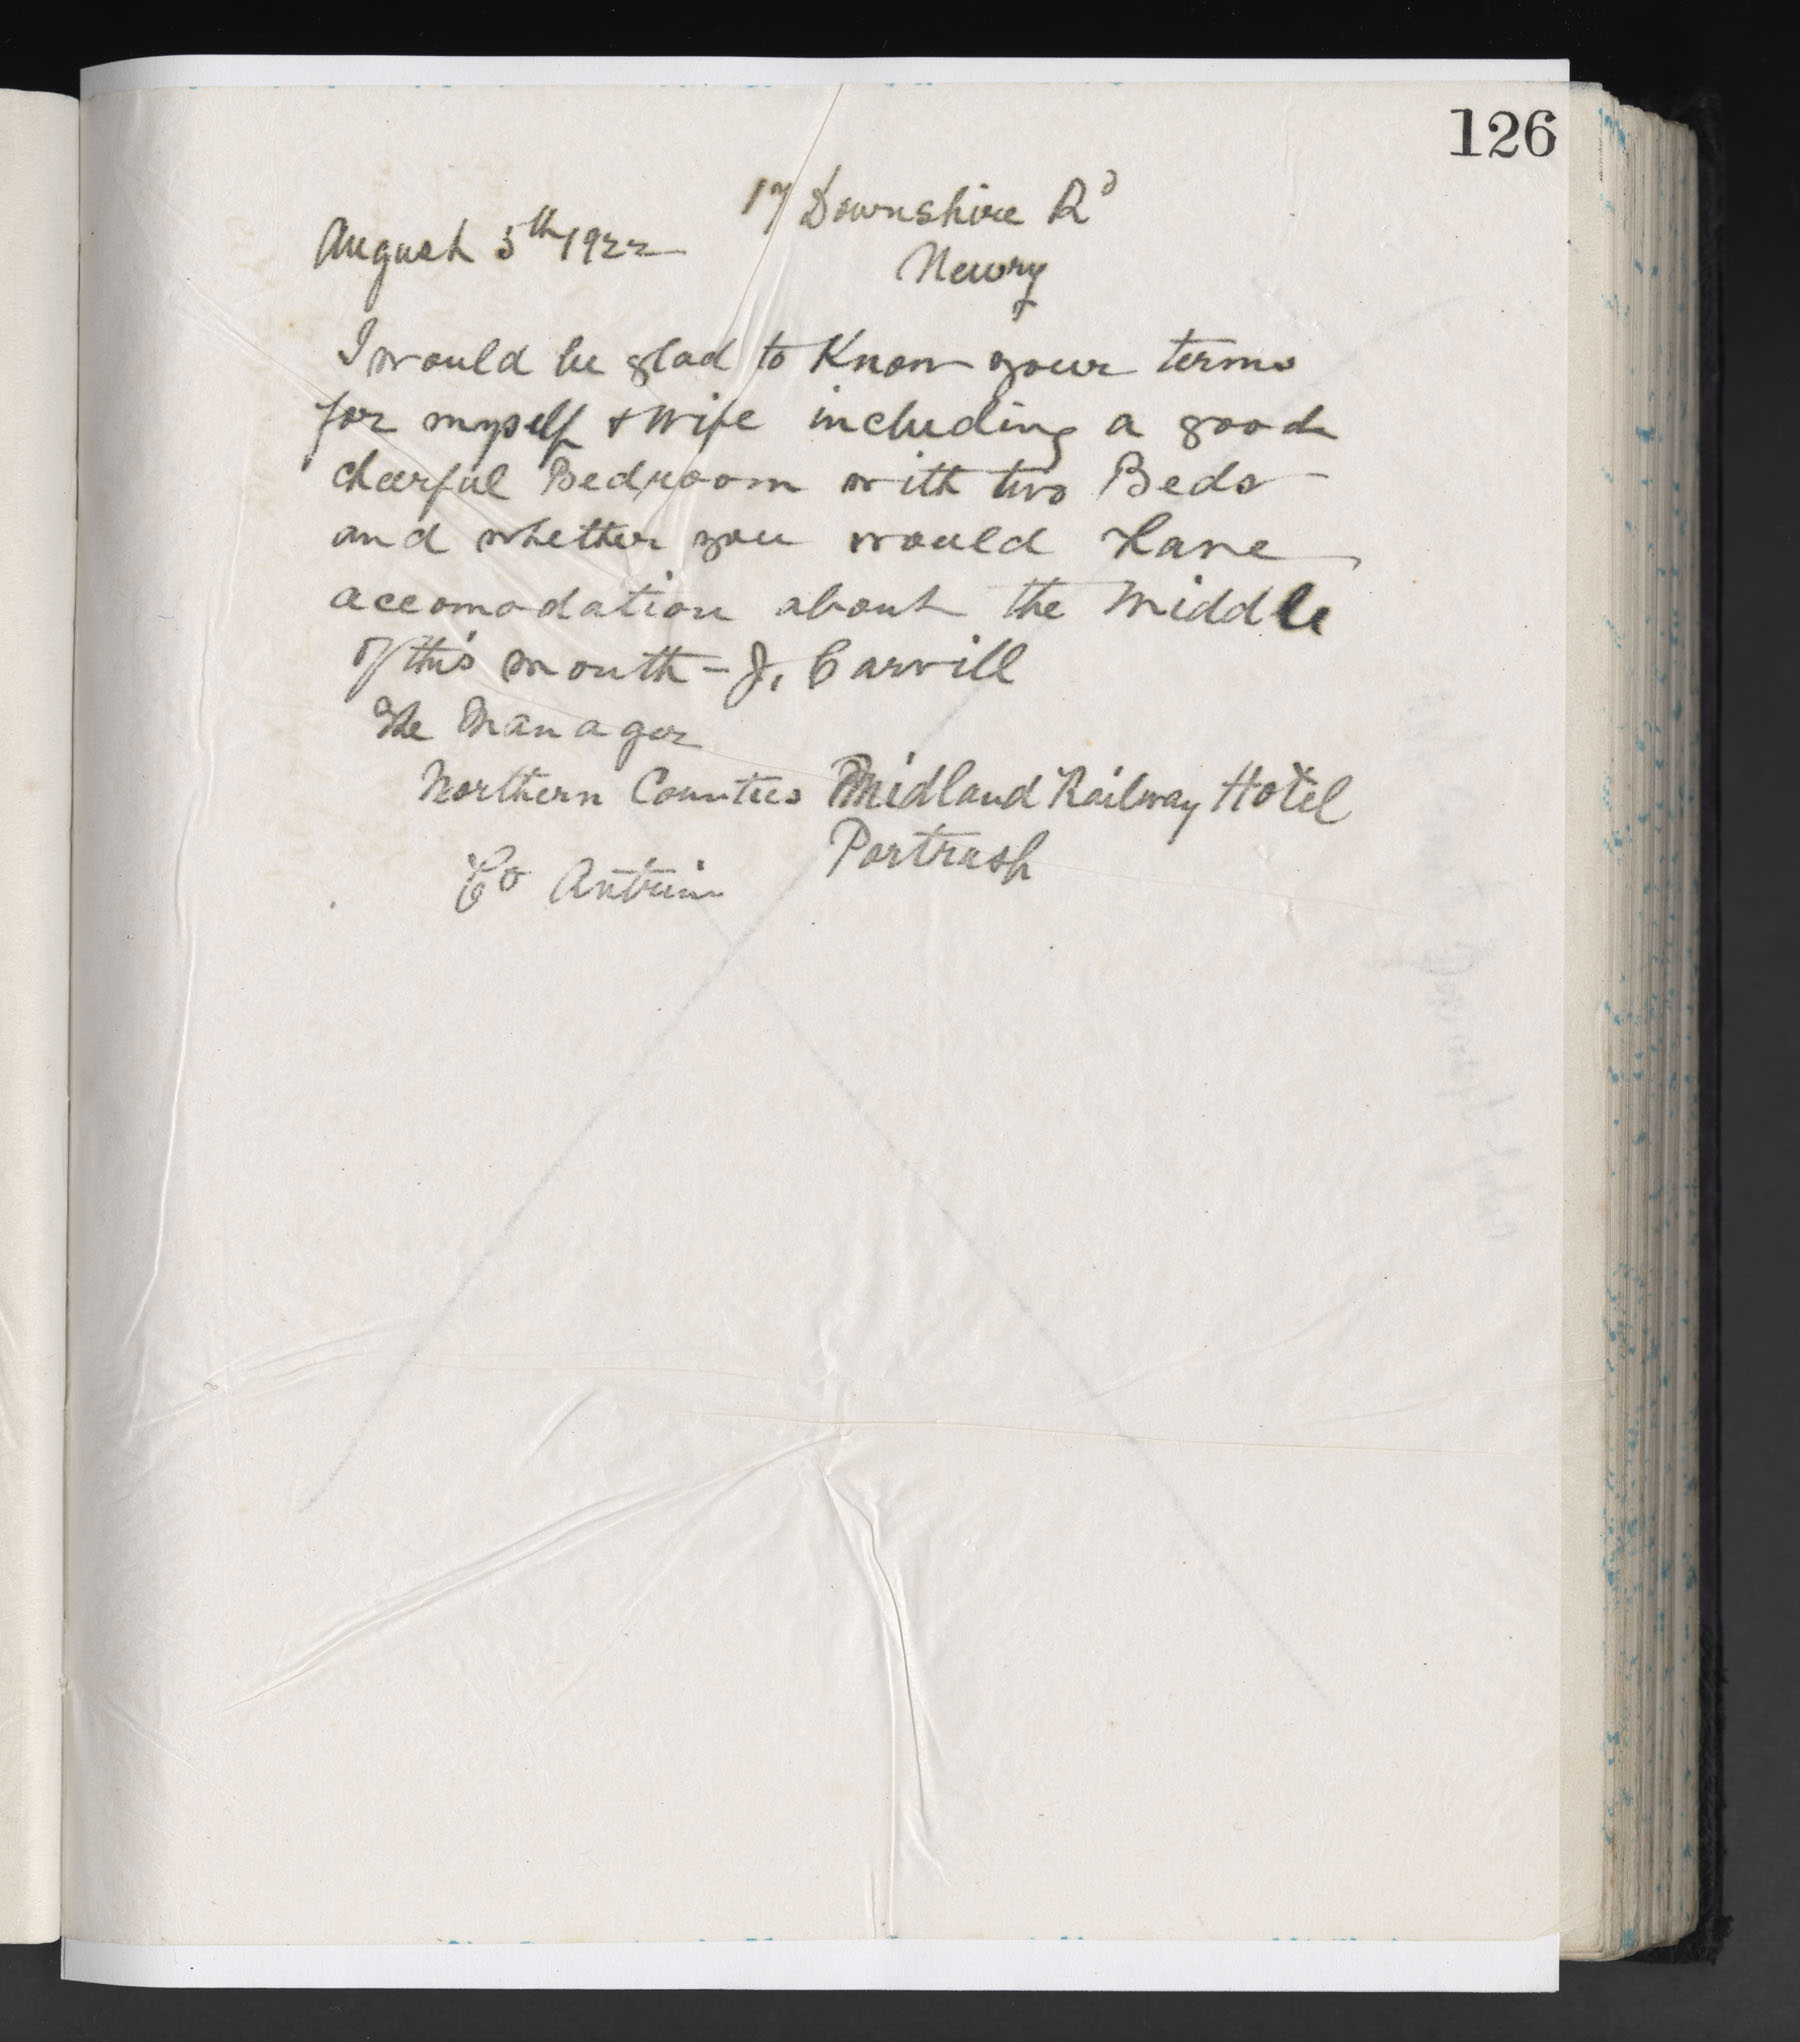 126
17 Downshire Rd
August 5th 1922
Newry
I would be glad to Know your terms
for myself & wife including a good
cheerful Bedroom with two Beds
and whether you would have
accomodation about the Middle
of this month - J. Carvill
The Manager
Northern Counties Midland Railway Hotel
Portrush
Co Antrim